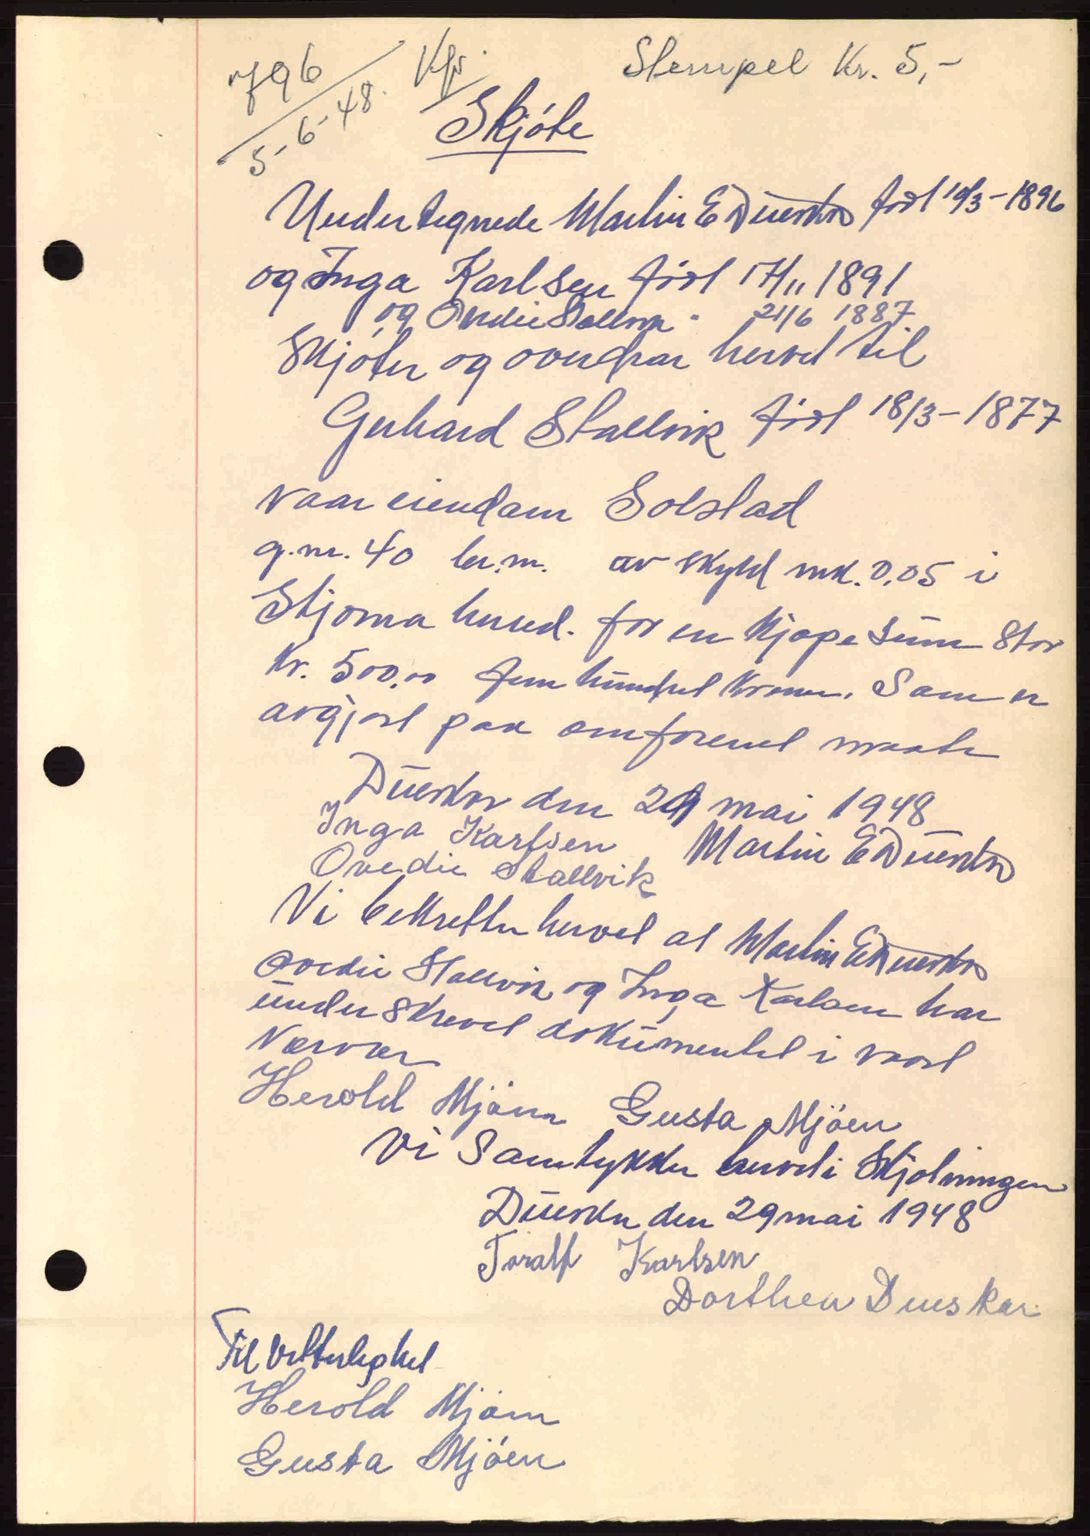 796 Kfr. Stempel Kr. 5,-
5-6-48.
Skjöte
Undertegnede Martin E Duestdr födt 10/3-1896
og Inga Karlsen födt 17/11 1891
og Ovedie Stallvik " 21/6 1887
Skjöter og overdrar herved til
Gerhard Stallvik födt 18/3-1877
vaar eiendom Solstad
g.nr. 40 br.nr. av skyld mk. 0,05 i
Stjorna herred. for en kjöpesum stor
Kr. 500,00 fem hundrel kroner. Som er
avgjort paa omforenet maate
den 29 mai 1948
Inga Karlsen Martin E
Ovedie Stallvik
Vi bekrefter herved at Martin E
Ovedie Stallvik og Inga Karlsen har
underskrevet dokumentet i vaart
Nærvær
Herold Mjöen Gusta Mjöen
Vi Samtykker herved i Skjötningen
den 29 mai 1948
Toralf Karlsen
Dorthea Dueskar.
Til Vitterlighet
Herold Mjöen
Gusta Mjöen